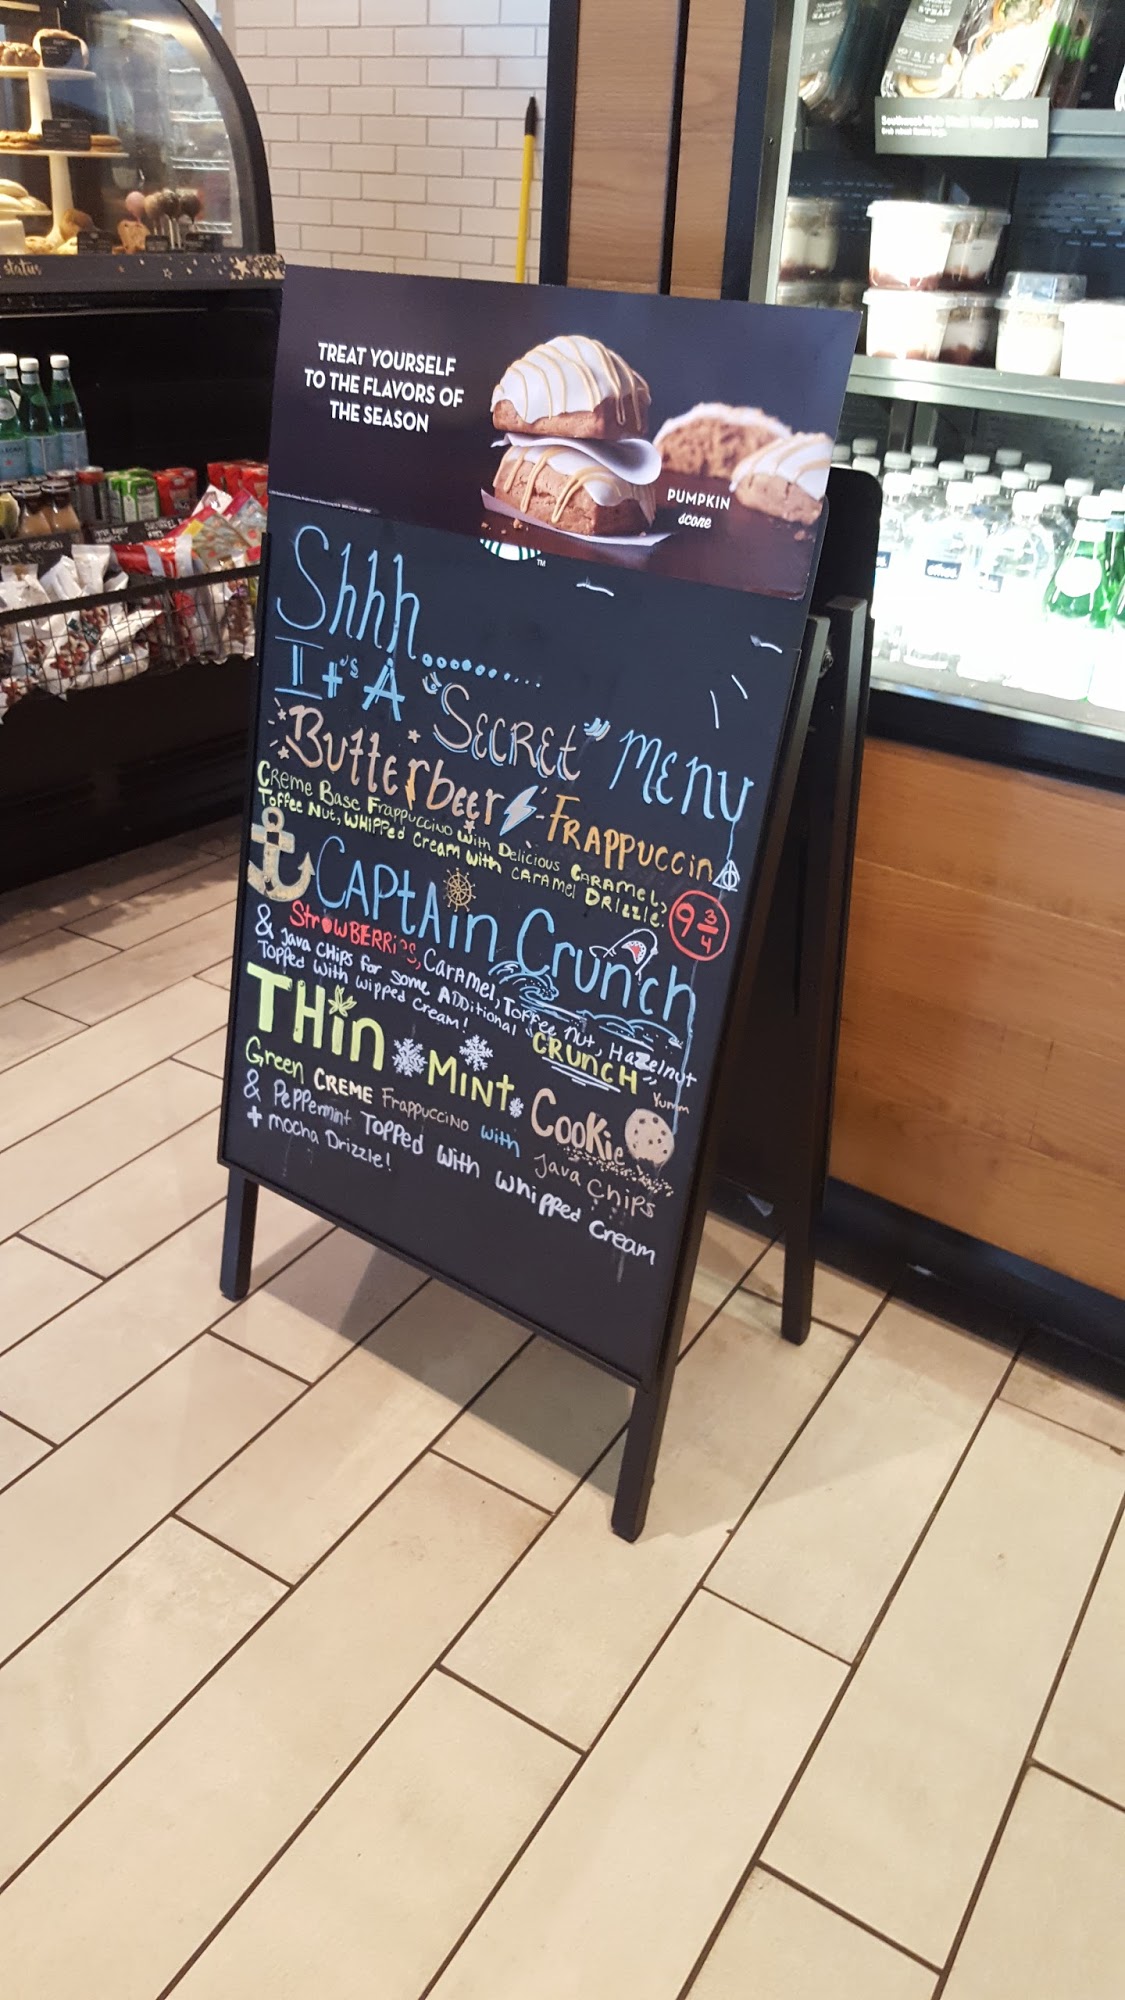 TREAT YOURSELF
TO THE FLAVORS OF
THE SEASON
PUMPKIN
scone
TM
Shhh.........
It's A "SECRET" MENU
ButterbeER-FRAPPUCCINO
Creme Base Frappuccino with Delicious CARAMEL,
Toffee Nut, WHIPPed Cream with CARAMEL DRIZZLE.
9 3/4
CAPtAin Crunch
StrOWBERRies, CarAMel, Toffee nut, HaZelnut
& Java CHips for some ADDitional "CRUNCH" Yumm
Topped with wipped Cream!
THin MINt Cookie
Green CREME Frappuccino with Java Chips
& PePPermint TOPPed With whipped Cream
+ mocha Drizzle!
status